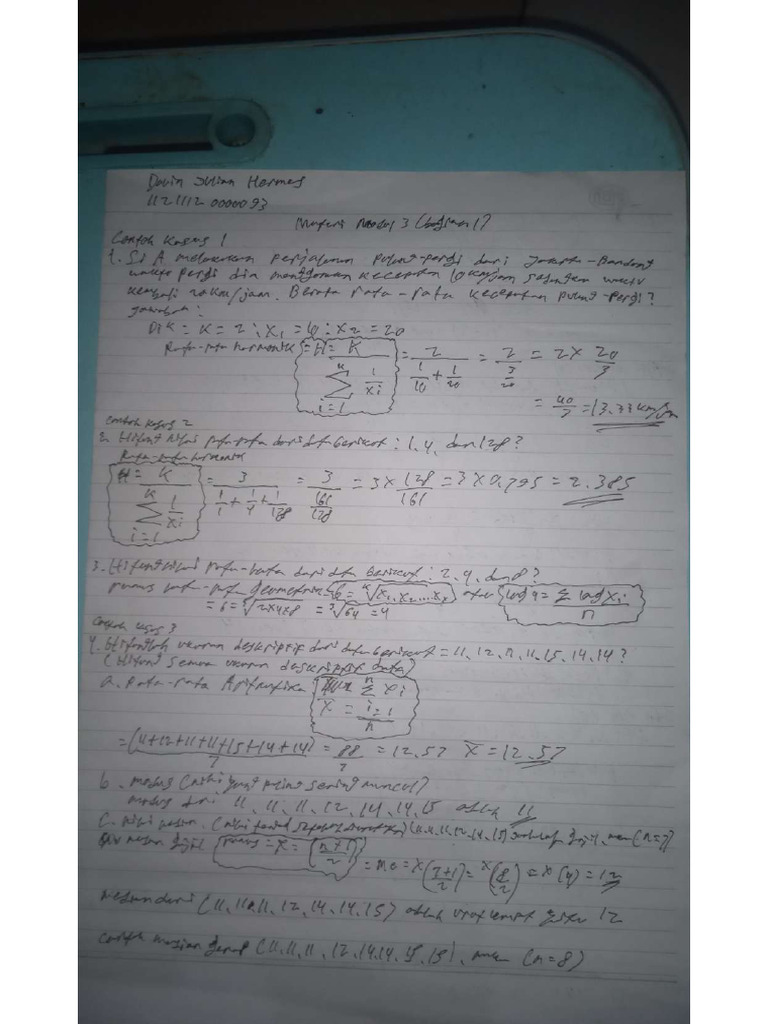 Julian Hermes
1121112 0000093
Materi Modul 3 (bagian 1)
Contoh kasus 1
1. Si A melakukan perjalanan pulang-pergi dari Jakarta-Bandung
waktu pergi dia menggunakan kecepatan 10 km/jam sedangkan waktu
kembali 20 km/jam. Berapa rata-rata kecepatan pulang-pergi?
Jawab:
Dik = K = 2 ; x1 = 10 ; x2 = 20
Rata-rata harmonik = H = K / Σ i=1 1/xi = 2 / (1/10 + 1/20) = 2 / (3/20) = 2 × 20/3
= 40/3 = 13.33 km/jam
Contoh kasus 2
2. Hitung nilai rata-rata dari data berikut : 1, 4, dan 128?
Rata-rata harmonik
H = K / Σ K i=1 1/xi = 3 / (1/1 + 1/4 + 1/128) = 3 / (161/128) = 3 × 128/161 = 3 × 0,795 = 2.385
3. Hitung nilai rata-rata dari data berikut : 2, 4, dan 8?
rumus rata-rata geometrik = G = ⁿ√x1, x2, ... x atau log G = Σ log xi / n
= G = ³√2x4x8 = ³√64 = 4
Contoh kasus 3
4. Hitunglah ukuran deskriptif dari data berikut = 11, 12, 11, 11, 15, 14, 14?
(Hitung semua ukuran deskriptif data)
a. Rata-rata Aritmatika x̄ = Σ n i=1 xi / n
= (11+12+11+11+15+14+14) / 7 = 88/7 = 12.57 x̄ = 12.57
b. modus (nilai yang paling sering muncul)
modus dari 11, 11, 11, 12, 14, 14, 15 adalah 11
c. Nilai median (11, 11, 11, 12, 14, 14, 15) ganjil, (n=7)
median ganjil rumus = x = (n+1 / 2) = me = x (7+1 / 2) = x (8/2) = x (4) = 12
Median dari (11, 11, 11, 12, 14, 14, 15) adalah yaitu 12
genap (11, 11, 11, 12, 14, 14, 15, 15), (n=8)